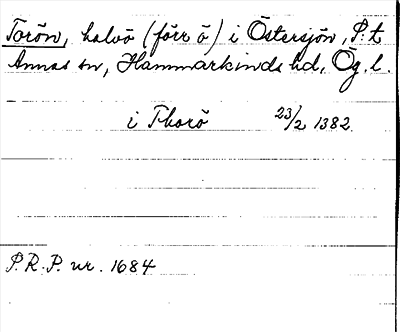 Torön, halvö (förr ö) i Östersjön, S:t
Annas sn, Hammarkinds hd, Ög. l.
i Thorö 23/2 1382
P.R.P. nr. 1684